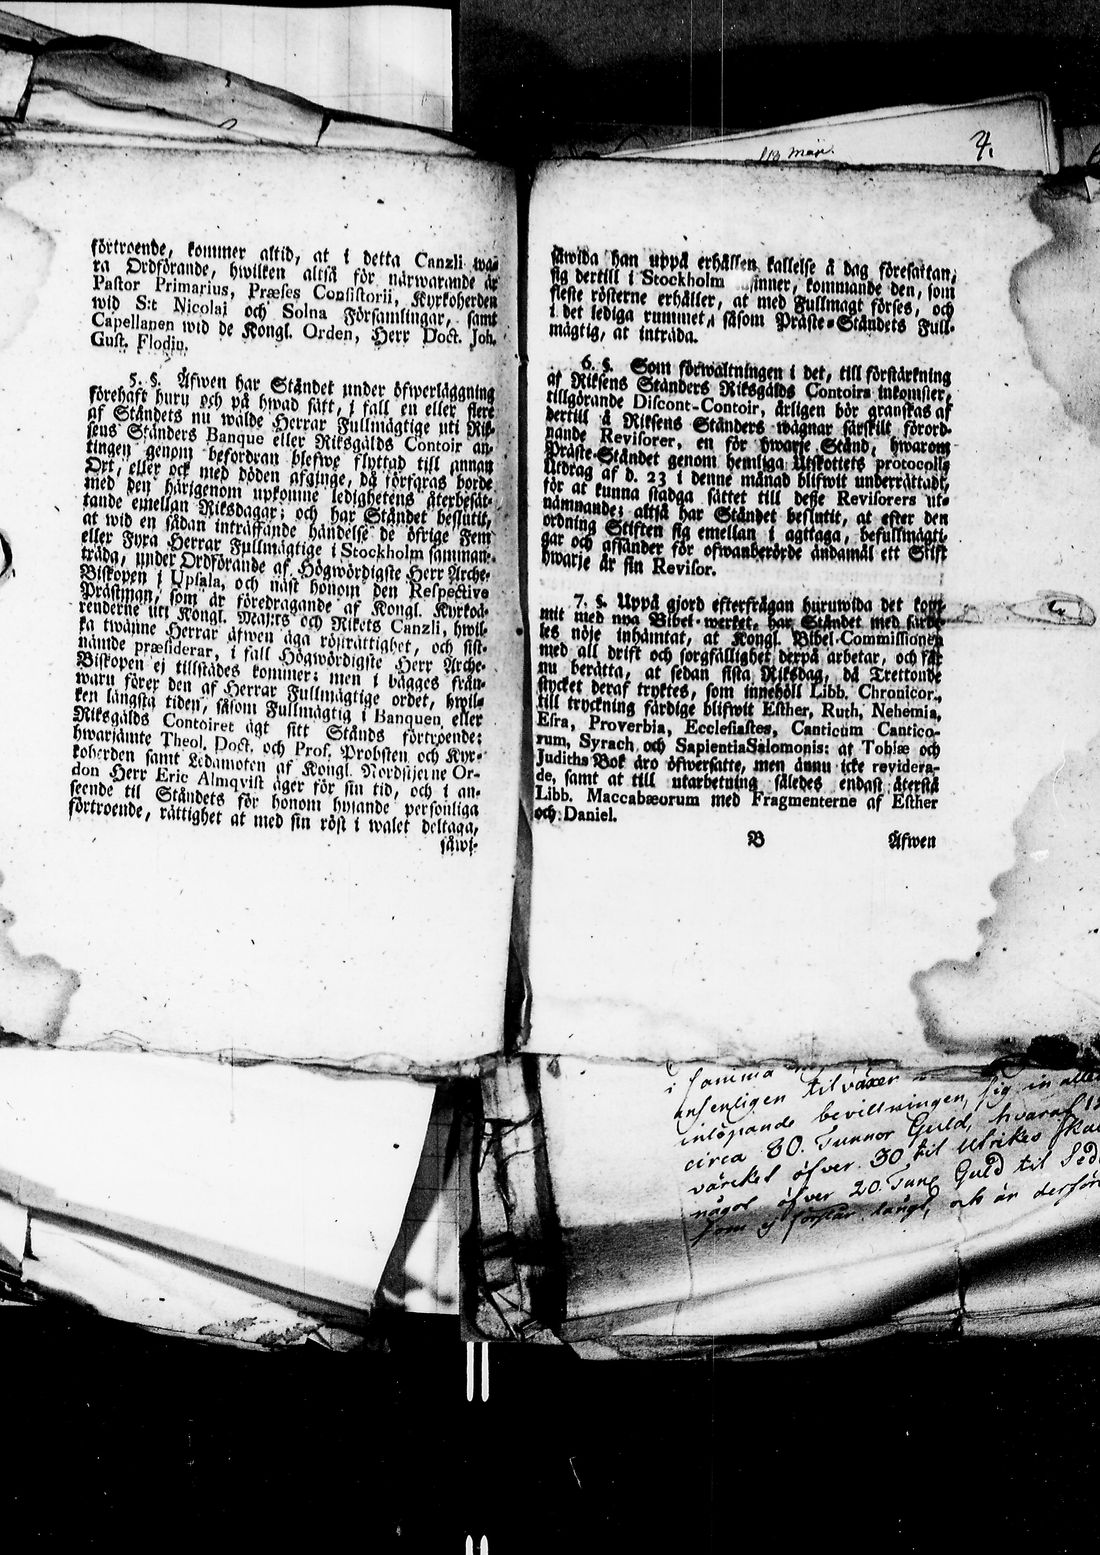 förtroende, kommer altid, at i detta Canzli wa-
ra Ordförande, hwilken altså för närwarande är
Pastor Primarius, Præses Consistorii, Kyrkoherden
wid S:t Nicolai och Solna Församlingar, samt
Capellanen wid de Kongl. Orden, Herr Doct. Joh.
Gust. Flodin.
5. §. Äfwen har Ståndet under öfwerläggning
förehaft huru och på hwad sätt, i fall en eller flere
af Ståndets nu walde Herrar Fullmägtige uti Rik-
sens Ständers Banque eller Riksgälds Contoir an-
tingen genom befordran blefwe flyttad till annan
Ort, eller ock med döden afginge, då förfaras borde
med den härigenom upkomne ledighetens återbesät-
tande emellan Riksdagar; och har Ståndet beslutit,
at wid en sådan inträffande händelse de öfrige Fem
eller Fyra Herrar Fullmägtige i Stockholm samman-
träda, under Ordförande af Högwördigste Herr Arche-
Biskopen i Upsala, och näst honom den Respective
Prästman, som är föredragande af Kongl. Kyrkoä-
renderne uti Kongl. Maj:ts och Rikets Canzli, hwil-
ka twänne Herrar äfwen äga rösträttighet, och sist-
nämde præsiderar, i fall Högwördigste Herr Arche-
Biskopen ej tillstädes kommer: men i bägges från-
waru förer den af Herrar Fullmägtige ordet, hwil-
ken längsta tiden, såsom Fullmägtig i Banquen eller
Riksgälds Contoiret ägt sitt Stånds förtroende:
hwarjämte Theol. Doct. och Prof. Probsten och Kyr-
koherden samt Ledamoten af Kongl. Nordstjerne Or-
don Herr Eric Almqvist äger för sin tid, och i an-
seende til Ståndets för honom hysande personliga
förtroende, rättighet at med sin röst i walet deltaga,
såwi-
113 mar.
4.
såwida han uppå erhållen kallelse å dag föresattan,
sig dertill i Stockholm infinner, kommande den, som
fleste rösterne erhåller, at med Fullmagt förses, och
i det lediga rummet, såsom Präste-Ståndets Full-
mägtig, at inträda.
6. §. Som förwaltningen i det, till förstärkning
af Riksens Ständers Riksgälds Contoirs inkomster,
tillgörande Discont-Contoir, årligen bör granskas af
dertill å Riksens Ständers wägnar särskilt förord-
nande Revisorer, en för hwarje Stånd, hwarom
Präste-Ståndet genom hemliga Utskottets protocolls
Utdrag af d. 23 i denne månad blifwit underrättadt,
för at kunna stadga sättet till desse Revisorers ut-
nämnande; altså har Ståndet beslutit, at efter den
ordning Stiften sig emellan i agttaga, befullmägti-
gar och affänder för ofwanberörde ändamål ett Stift
hwarje år sin Revisor.
7. §. Uppå gjord efterfrågan huruwida det kom-
mit med nya Bibel-werket, har Ståndet med särde-
les nöje inhämtat, at Kongl. Bibel-Commissionen
med all drift och sorgfällighet derpå arbetar, och får
nu berätta, at sedan sista Riksdag, då Trettonde
stycket deraf tryktes, som innehöll Libb. Chronicor.,
till tryckning färdige blifwit Esther, Ruth, Nehemia,
Esra, Proverbia, Ecclesiastes, Canticum Cantico-
rum, Syrach och SapientiaSalomonis: at Tobiæ och
Judiths Bok äro öfwersatte, men ännu icke revidera-
de, samt at till utarbetning således endast återstå
Libb. Maccabæorum med Fragmenterne af Esther
och Daniel.
B Äfwen
i samma
ansenligen tilväxer sig in alles
inlöpande bevillningen,
circa 80. Tunnor Guld, hvaraf
värcket öfver 30 til Utrikes
något öfver 20. Tunn Guld til
som ej förslår långt, och än derföre